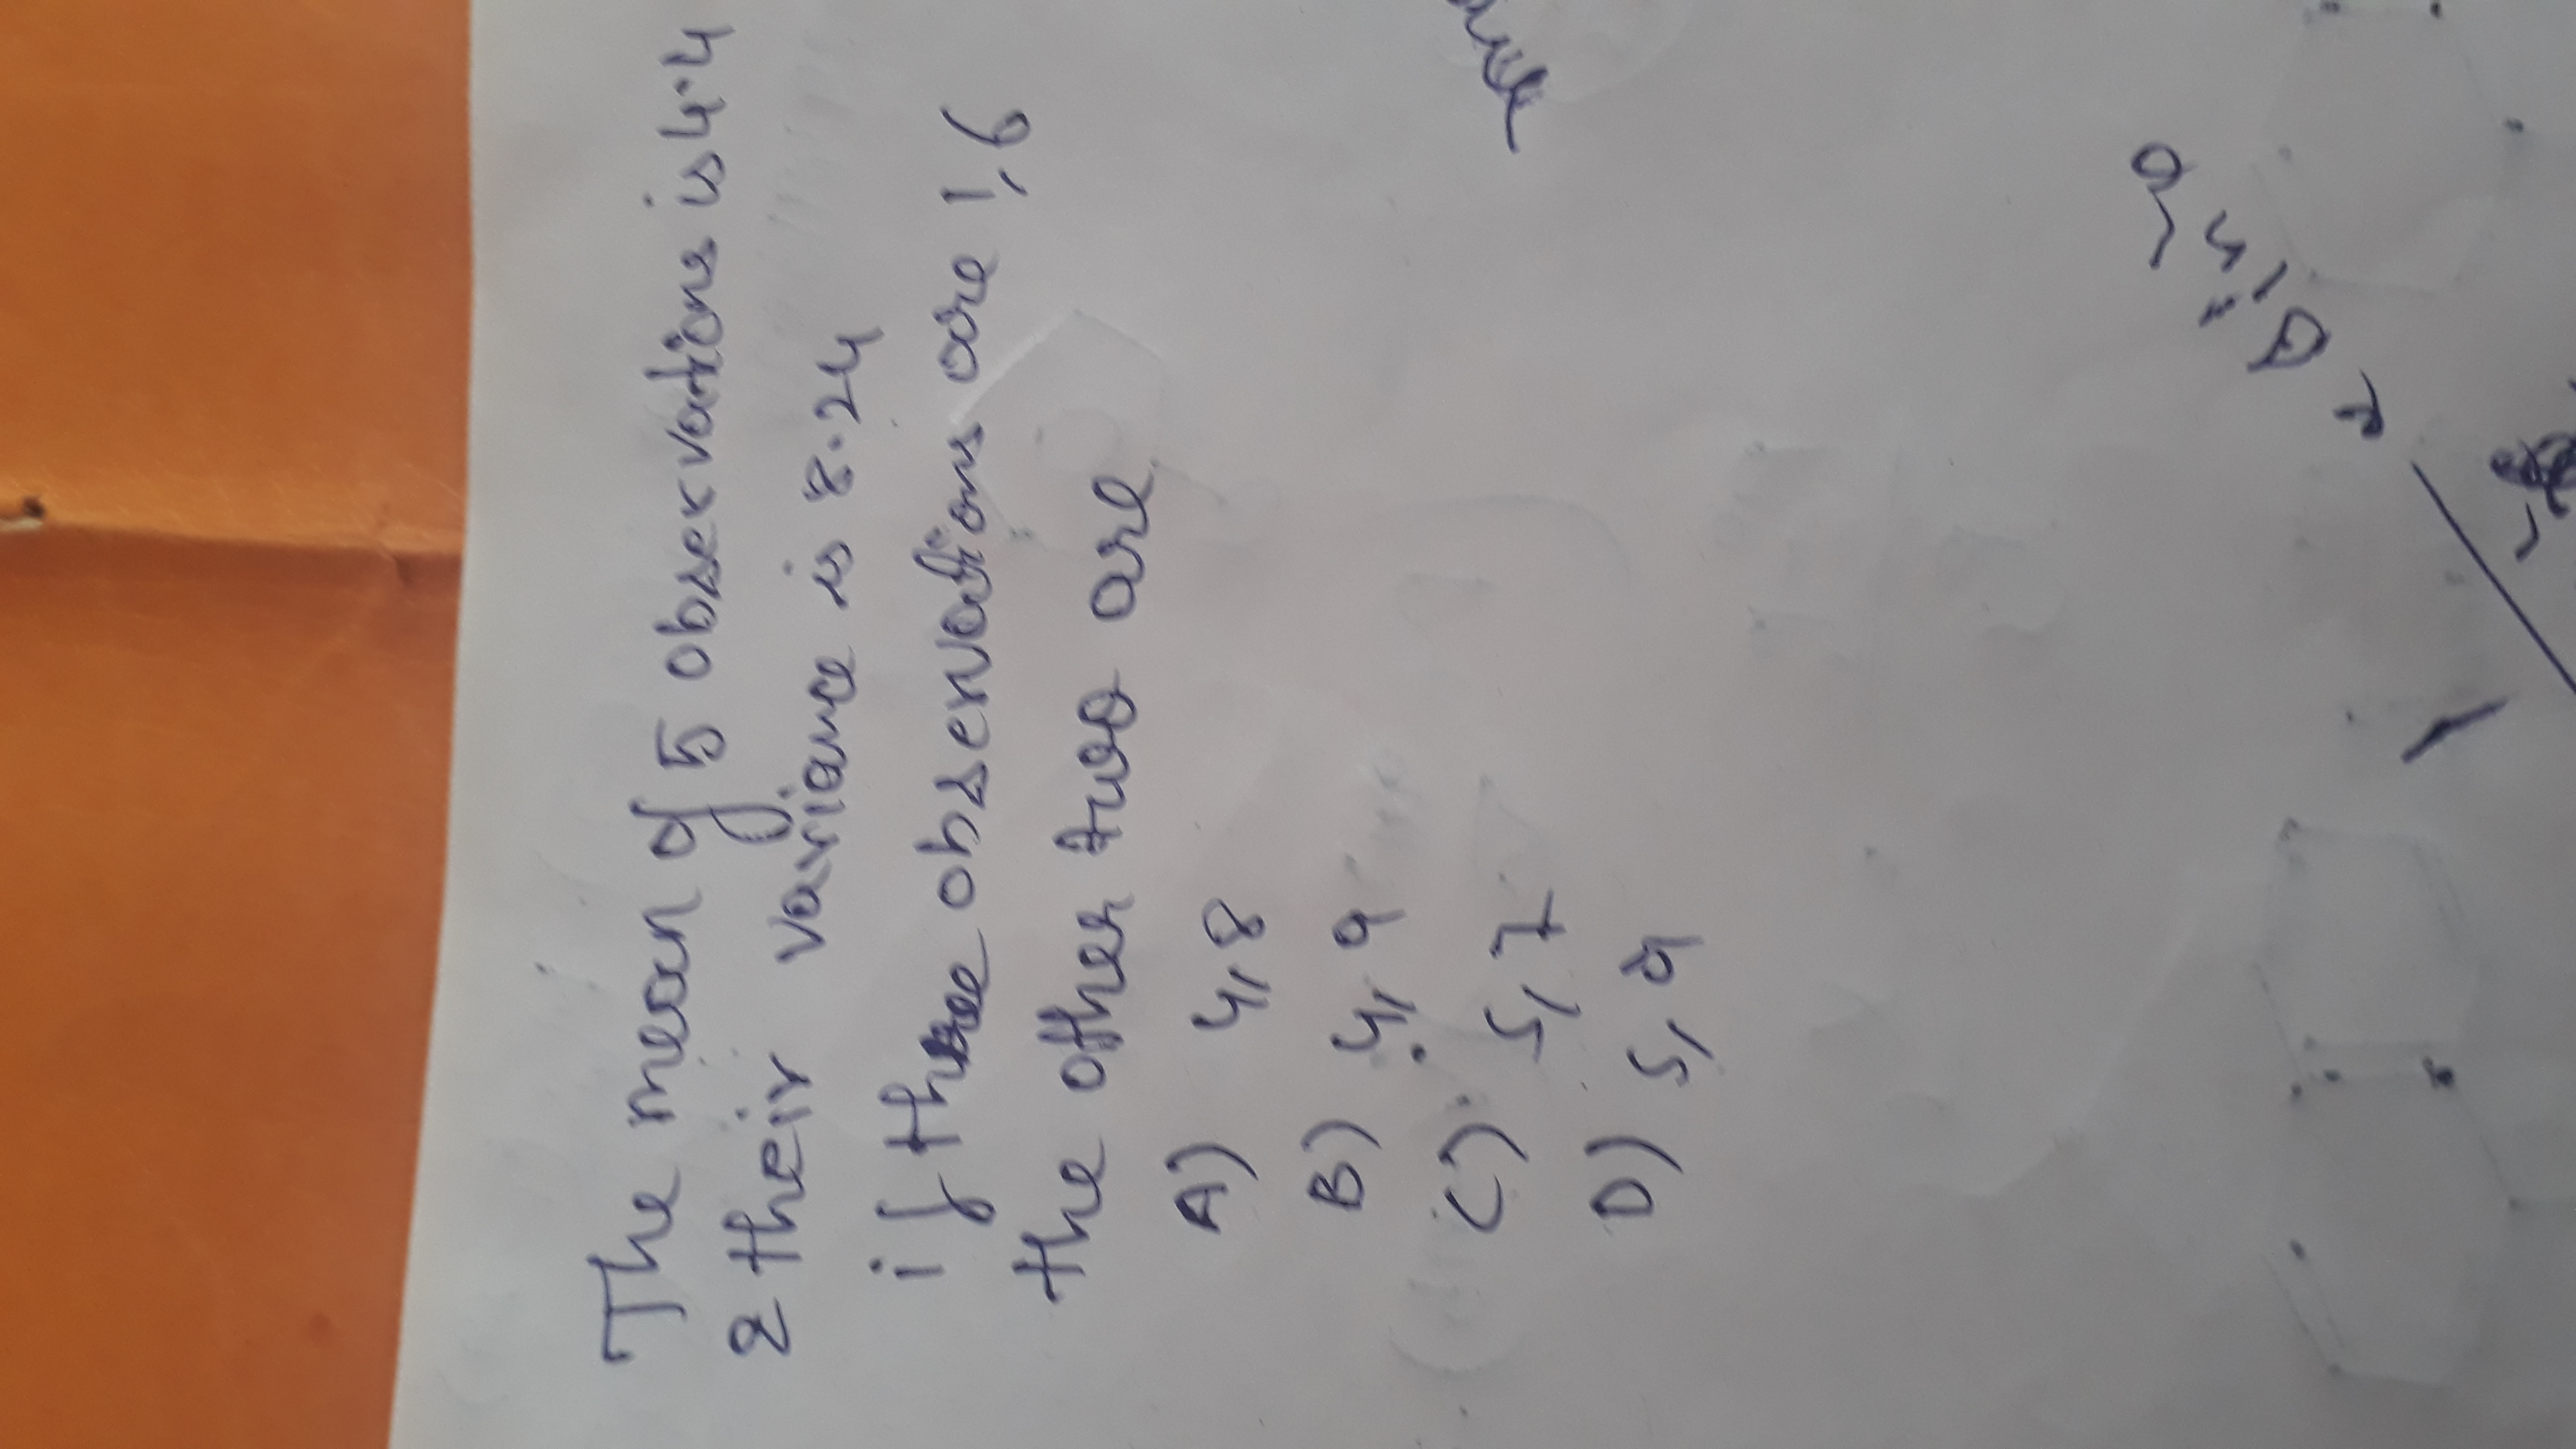 The mean of 5 observations is 4.4
& their variance is 8.24
if three observations are 1, 6
the other two are
A) 4, 8
B) 4, 9
C) 5, 7
D) 5, 9